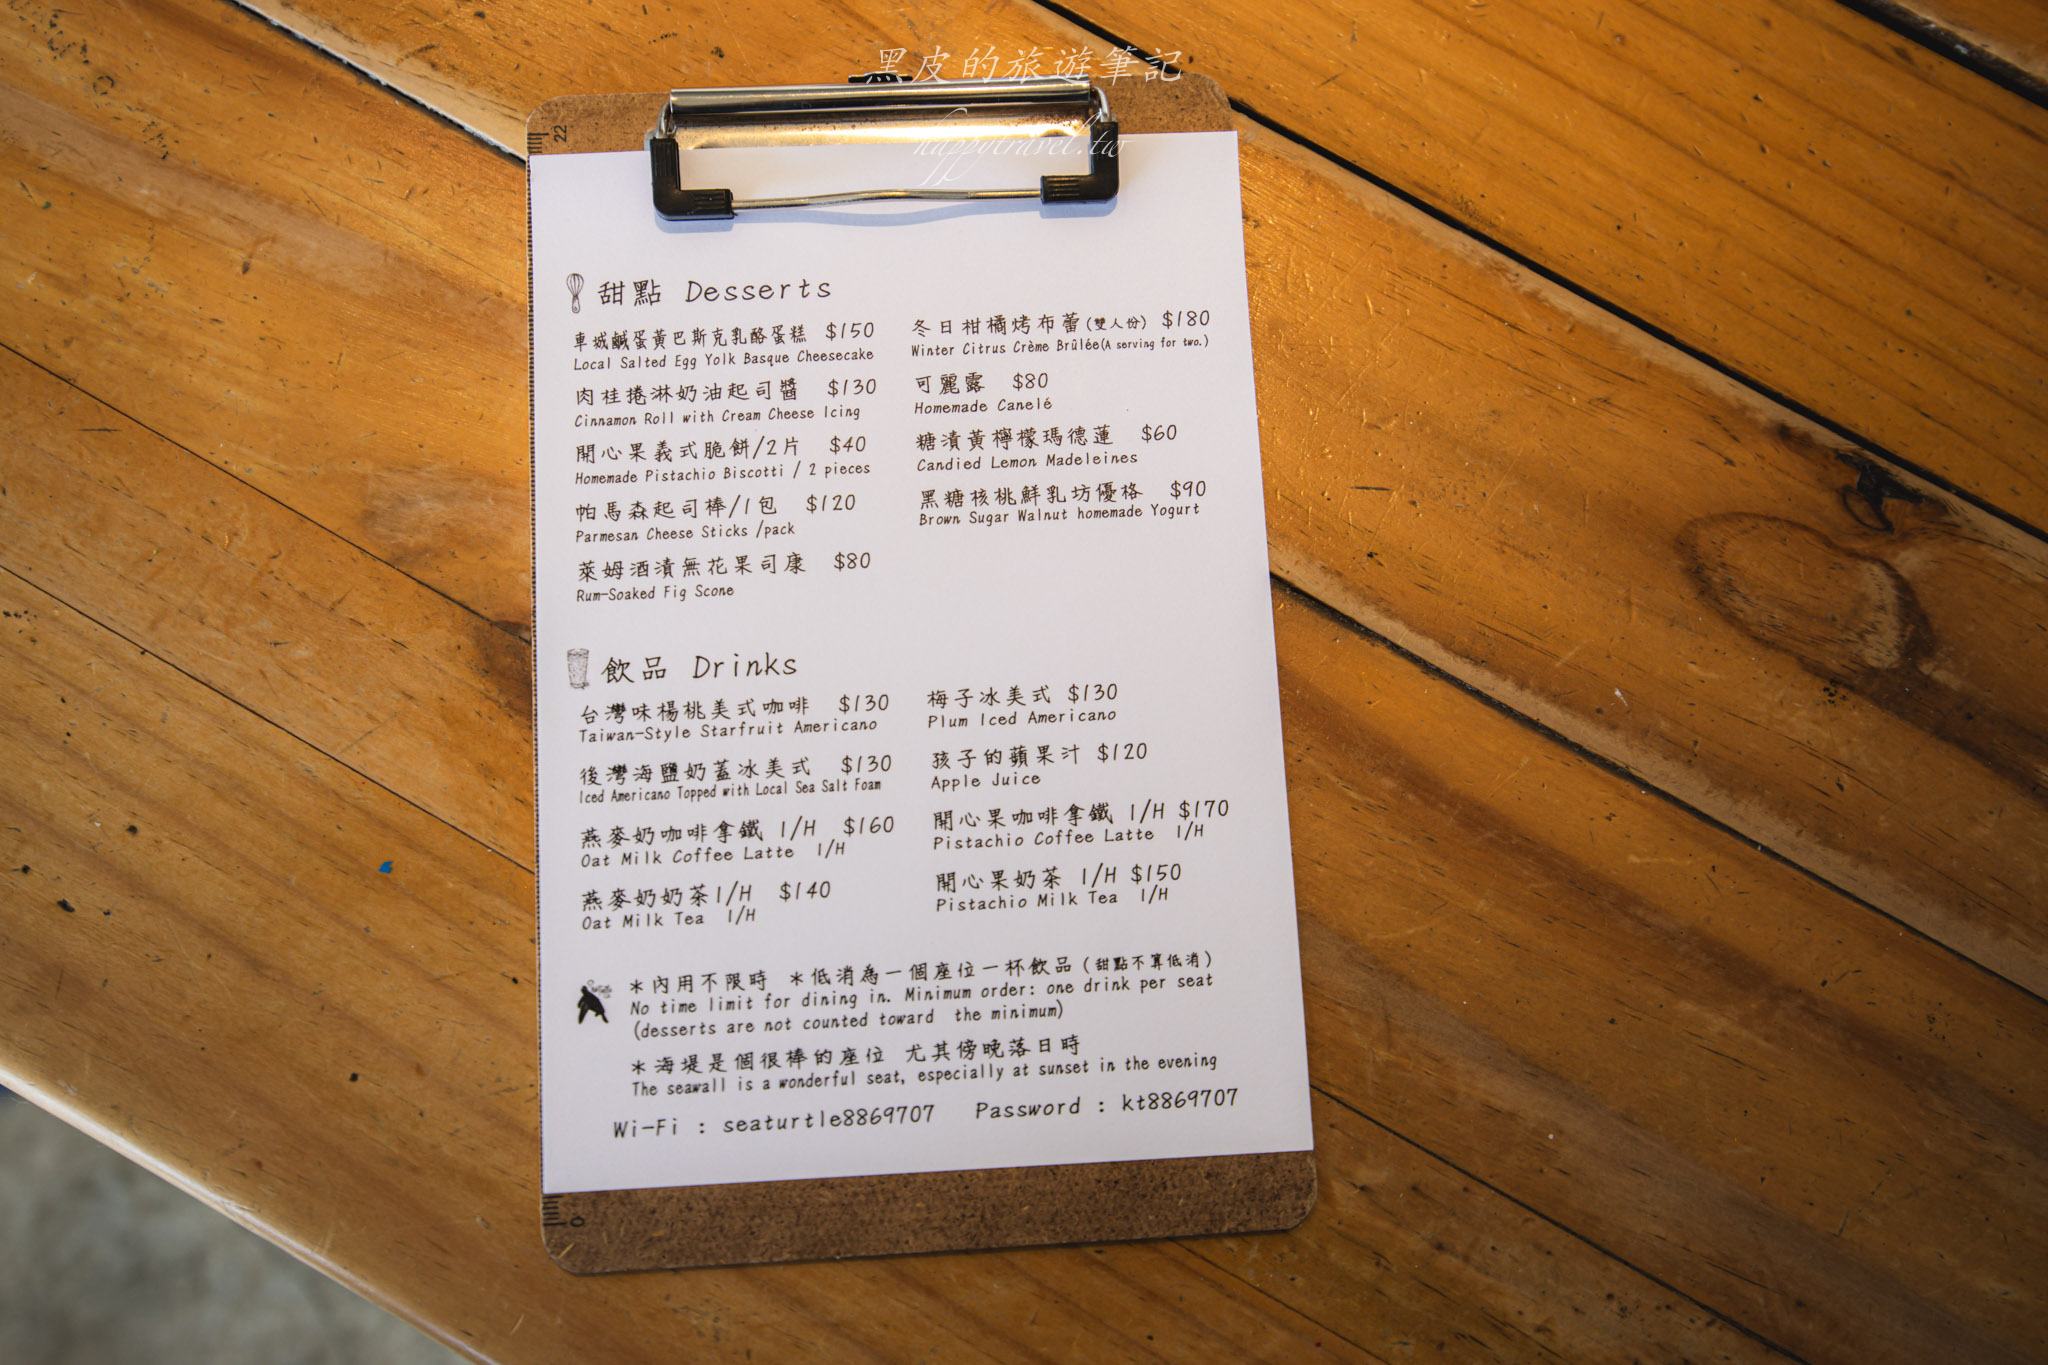 黑皮的旅遊筆記
happytravel.tw
22
甜點 Desserts
車城鹹蛋黃巴斯克乳酪蛋糕 $150
Local Salted Egg Yolk Basque Cheesecake
肉桂捲淋奶油起司醬 $130
Cinnamon Roll with Cream Cheese Icing
開心果義式脆餅/2片 $40
Homemade Pistachio Biscotti / 2 pieces
帕馬森起司棒/1包 $120
Parmesan Cheese Sticks /pack
萊姆酒漬無花果司康 $80
Rum-Soaked Fig Scone
冬日柑橘烤布蕾(雙人份) $180
Winter Citrus Crème Brûlée(A serving for two.)
可麗露 $80
Homemade Canelé
糖漬黃檸檬瑪德蓮 $60
Candied Lemon Madeleines
黑糖核桃鮮乳坊優格 $90
Brown Sugar Walnut homemade Yogurt
飲品 Drinks
台灣味楊桃美式咖啡 $130
Taiwan-Style Starfruit Americano
後灣海鹽奶蓋冰美式 $130
Iced Americano Topped with Local Sea Salt Foam
燕麥奶咖啡拿鐵 I/H $160
Oat Milk Coffee Latte I/H
燕麥奶奶茶I/H $140
Oat Milk Tea I/H
梅子冰美式 $130
Plum Iced Americano
孩子的蘋果汁 $120
Apple Juice
開心果咖啡拿鐵 I/H $170
Pistachio Coffee Latte I/H
開心果奶茶 I/H $150
Pistachio Milk Tea I/H
＊內用不限時 ＊低消為一個座位一杯飲品(甜點不算低消)
No time limit for dining in. Minimum order: one drink per seat
(desserts are not counted toward the minimum)
＊海堤是個很棒的座位 尤其傍晚落日時
The seawall is a wonderful seat, especially at sunset in the evening
Wi-Fi : seaturtle8869707 Password : kt8869707
0